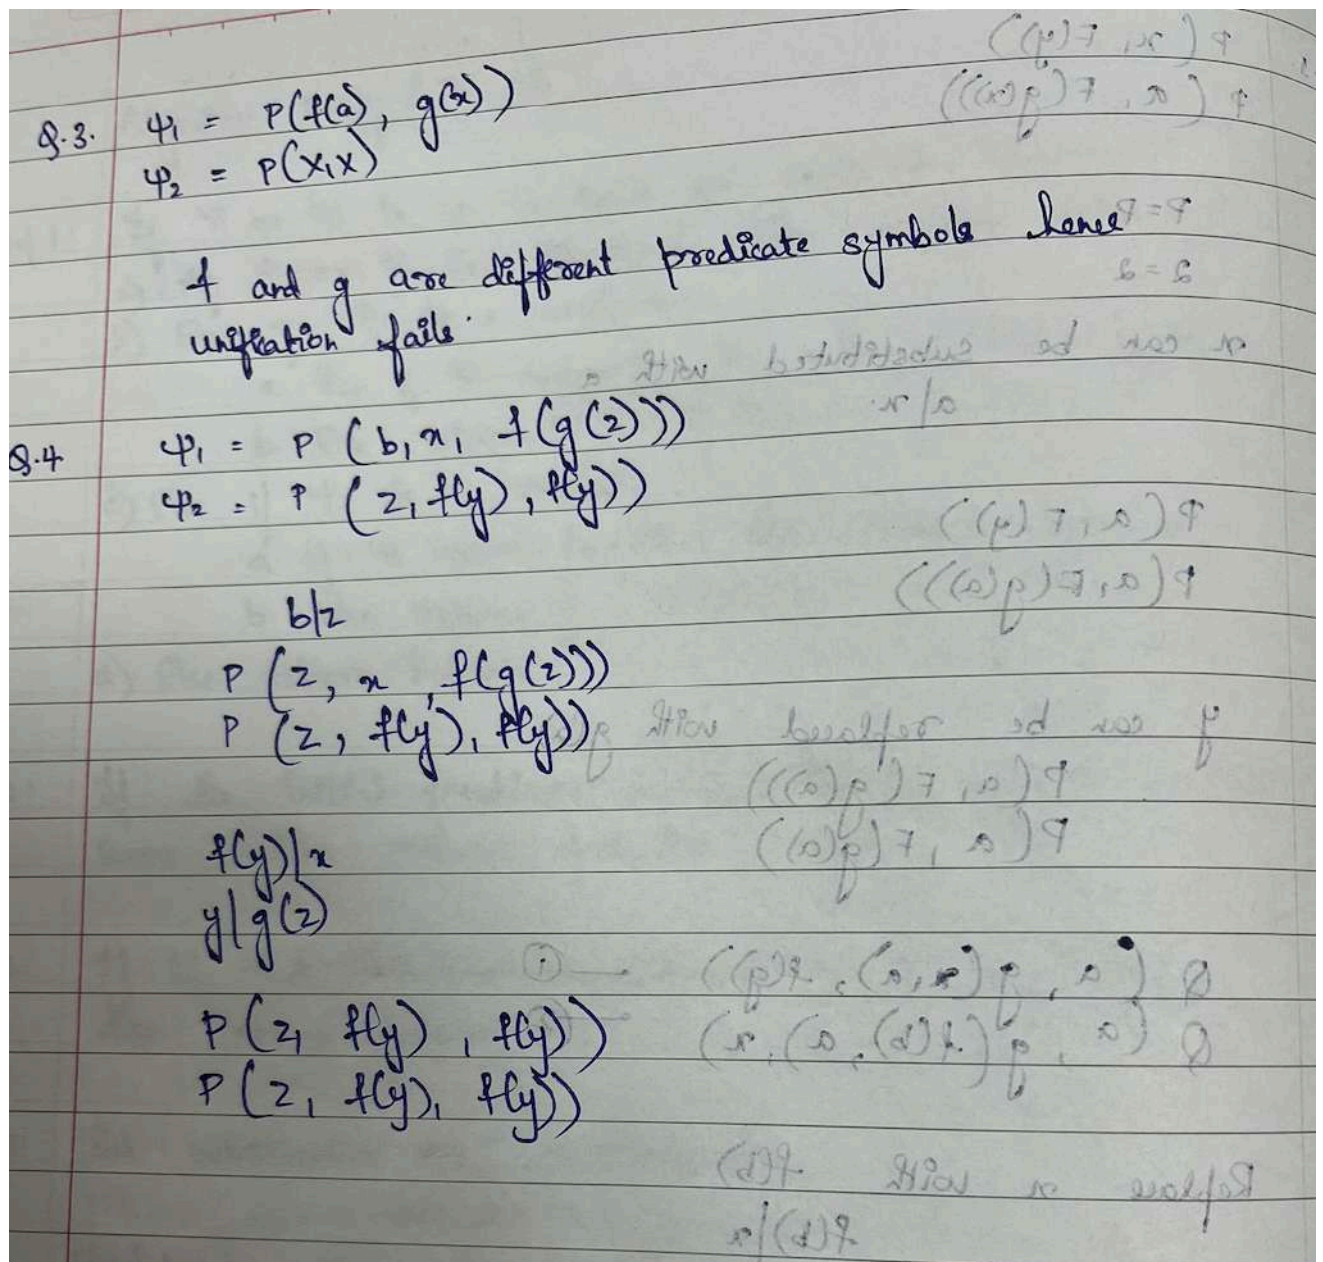 Q.3. ψ₁ = P(f(a), g(x))
ψ₂ = P(X,X)
f and g are different predicate symbols hence
unification fails.
Q.4 ψ₁ = P (b, x, f(g(z)))
ψ₂ = P (z, f(y), f(y))
b/z
P (z, x, f(g(z)))
P (z, f(y), f(y))
f(y)/x
y/g(z)
P (z, f(y), f(y))
P (z, f(y), f(y))